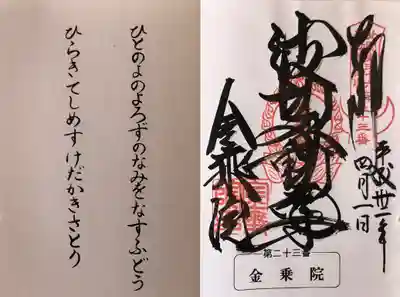 奉拝
平成卅一年
四月一日
波切不動尊
金乗院
第二十三番
金乗院
ひとのよのよろずのなみをなすふどう
ひらきてしめすけだかきさとり